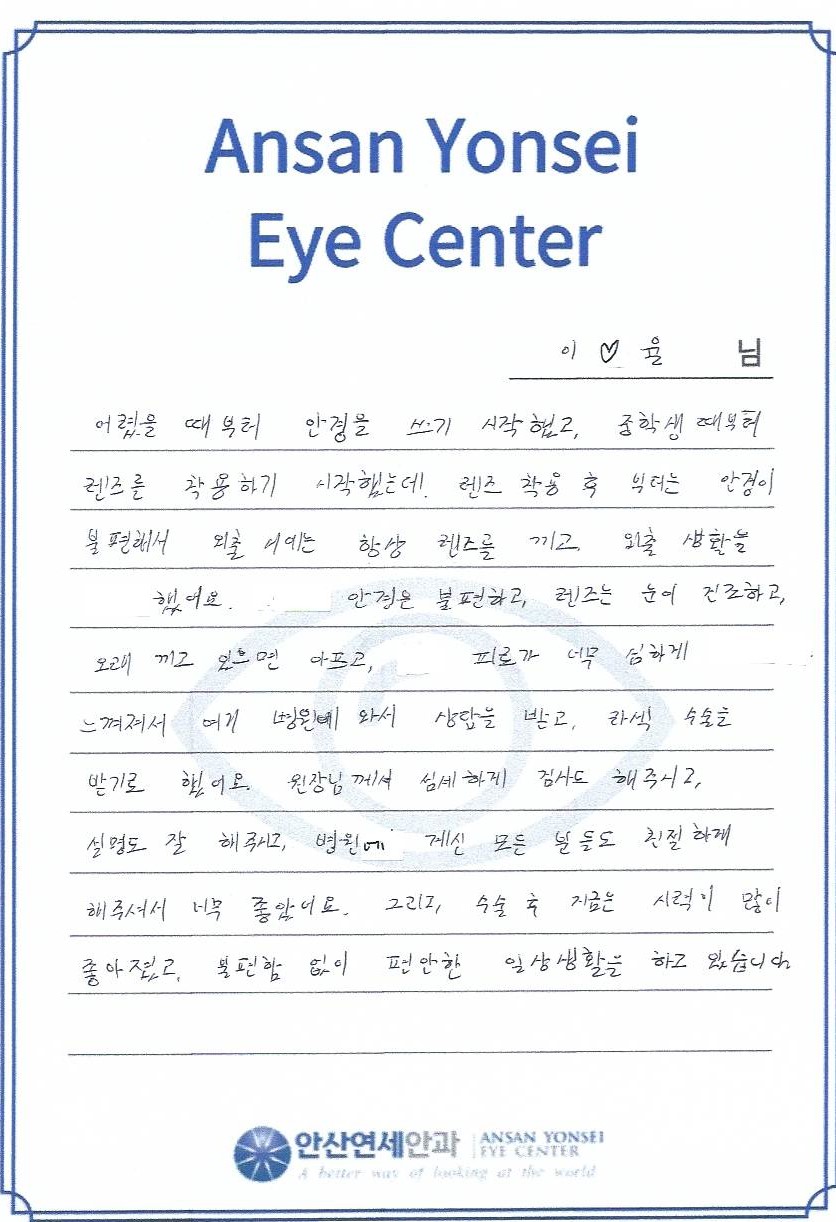 Ansan Yonsei
Eye Center
이 ♡ 율 님
어렸을 때부터 안경을 쓰기 시작했고, 중학생 때부터
렌즈를 착용하기 시작했는데! 렌즈 착용 후 부터는 안경이
불편해서 외출 시에는 항상 렌즈를 끼고, 외출 생활을
했어요. 안경은 불편하고, 렌즈는 눈이 건조하고,
오래 끼고 있으면 아프고, 피로가 너무 심하게
느껴져서 여기 병원에 와서 상담을 받고, 라식 수술을
받기로 했어요. 원장님께서 섬세하게 검사도 해주시고,
설명도 잘 해주시고, 병원에 계신 모든 분들도 친절하게
해주셔서 너무 좋았어요. 그리고, 수술 후 지금은 시력이 많이
좋아졌고, 불편함 없이 편안한 일상생활을 하고 있습니다
안산연세안과 ANSAN YONSEI
EYE CENTER
A better way of looking at the world